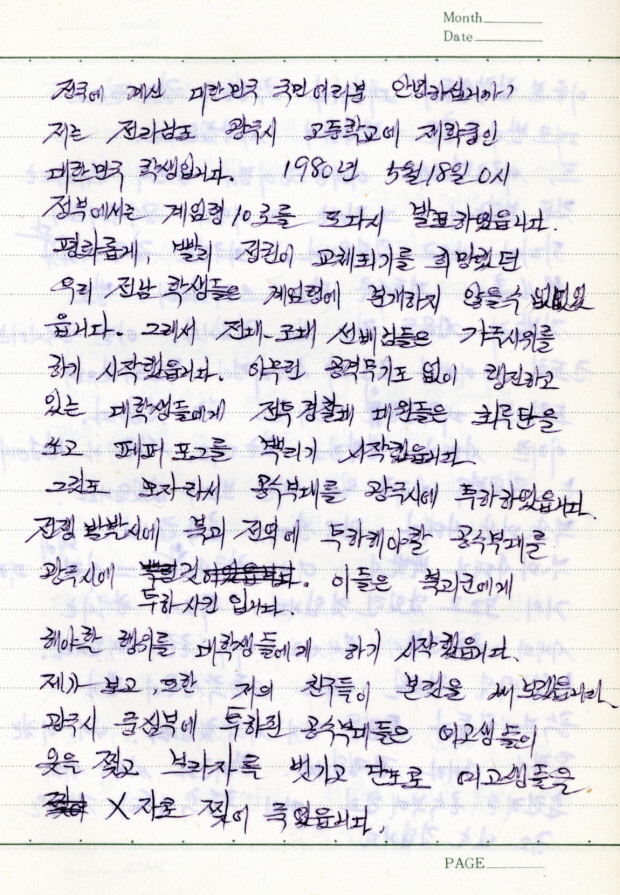 Month
Date
전국에 계신 대한민국 국민여러분 안녕하십니까?
저는 전라남도 광주시 고등학교에 재학중인
대한민국 학생입니다. 1980년 5월18일 0시
정부에서는 계엄령10호를 또다시 발표하였읍니다.
평화롭게, 빨리 정권이 교체되기를 희망했던
우리 전남 학생들은 계엄령에 번개하지 않을수 없었
읍니다. 그래서 전대·조대 선배님들은 가두시위를
하기 시작했읍니다. 아무런 공격무기도 없이 행진하고
있는 대학생들에게 전투경찰대 대원들은 최루탄을
쏘고 페퍼 포그를 뿌리기 시작했읍니다.
그런도 모자라서 공수부대를 광주시에 투하하였읍니다.
전쟁 발발시에 북괴 진외에 투하케야할 공수부대를
광주시에 투하시킨 것입니다. 이들은 북괴군에게
해야할 행위를 대학생들에게 하기 시작했읍니다.
제가 보고 또한 저의 친구들이 본것을 써 보겠읍니다.
광주시 중심부에 투하된 공수부대들은 여고생들의
옷을 찢고 브라자를 벗기고 칸도로 여고생들을
X자로 찢어 죽였읍니다.
PAGE